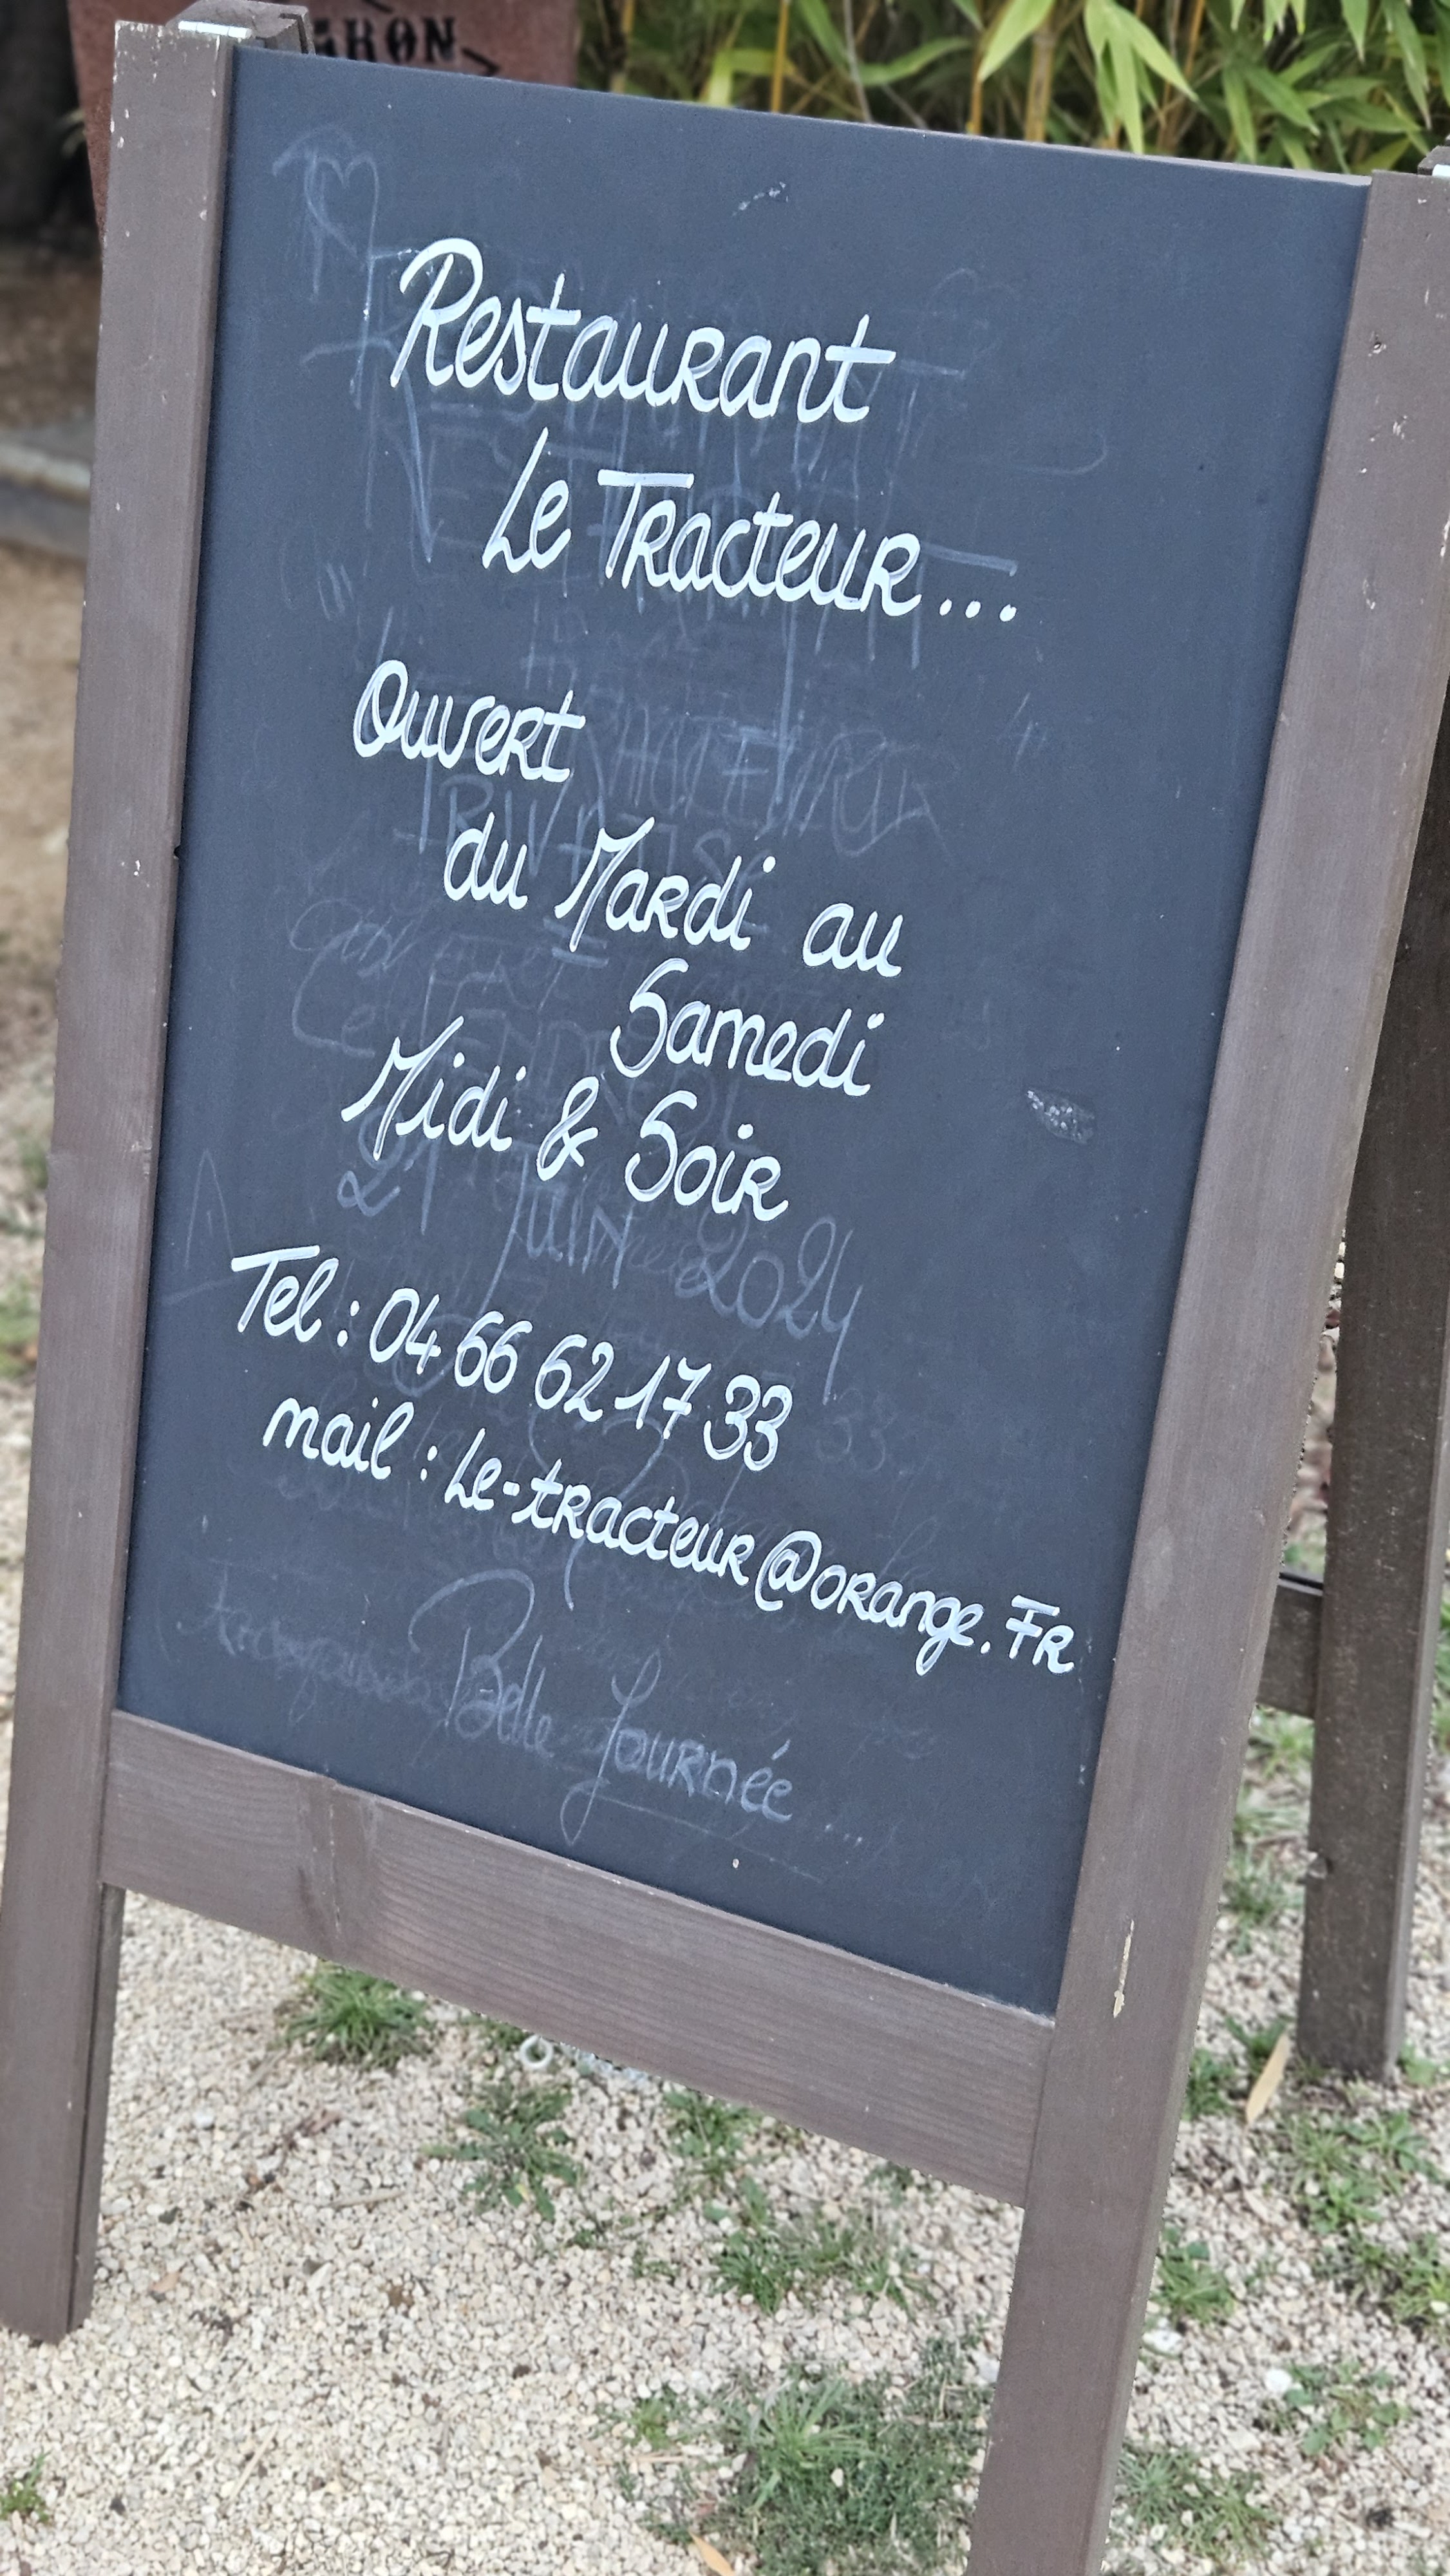 Restaurant
Le Tracteur...
Ouvert
du Mardi au
Samedi
Midi & Soir
21 Juin 2024
Tel : 04 66 62 17 33
mail : Le-tracteur@orange.FR
Belle Journée